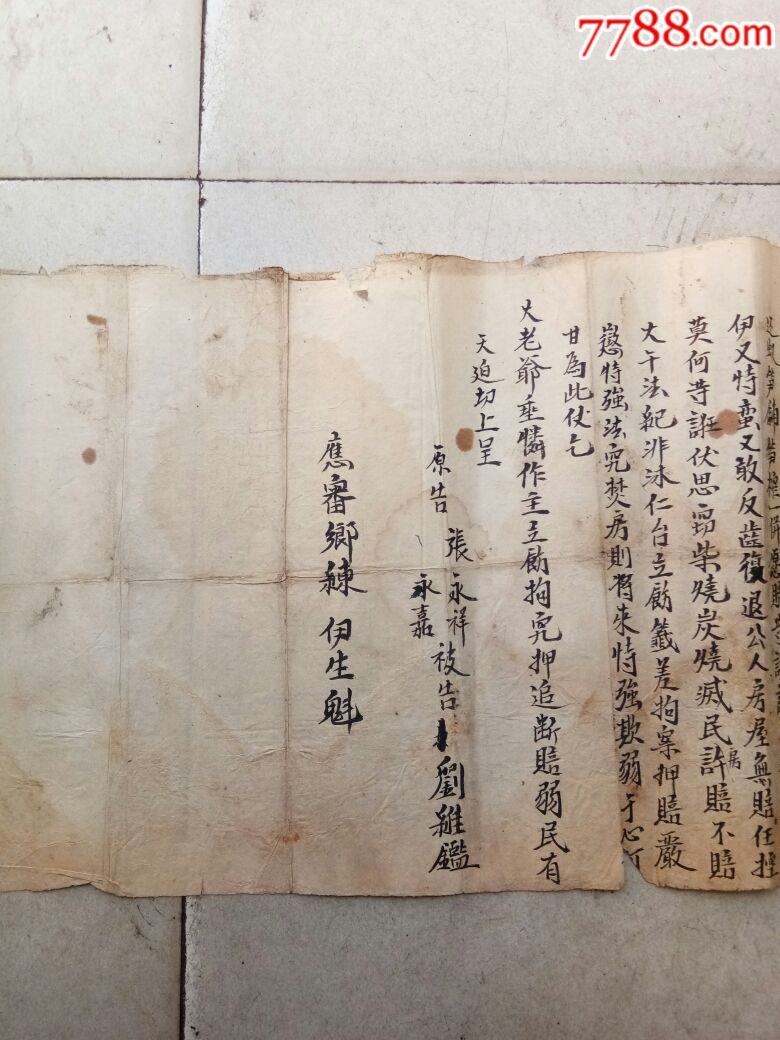 7788.com
伊又恃蛮又敢反齒復退公人房屋無賠任捏
莫何等誑伏思窃柴燒炭燒滅民房許賠不賠
大干法紀非沐仁台立飭籤差拘案押賠嚴
懲恃強法究焚房則將來恃強欺弱于心何
甘為此伏乞
大老爺垂憐作主立飭拘究押追断賠弱民有
天迫切上呈
原告 張永祥 永嘉 被告 劉維鑑
應審鄉練 伊生魁